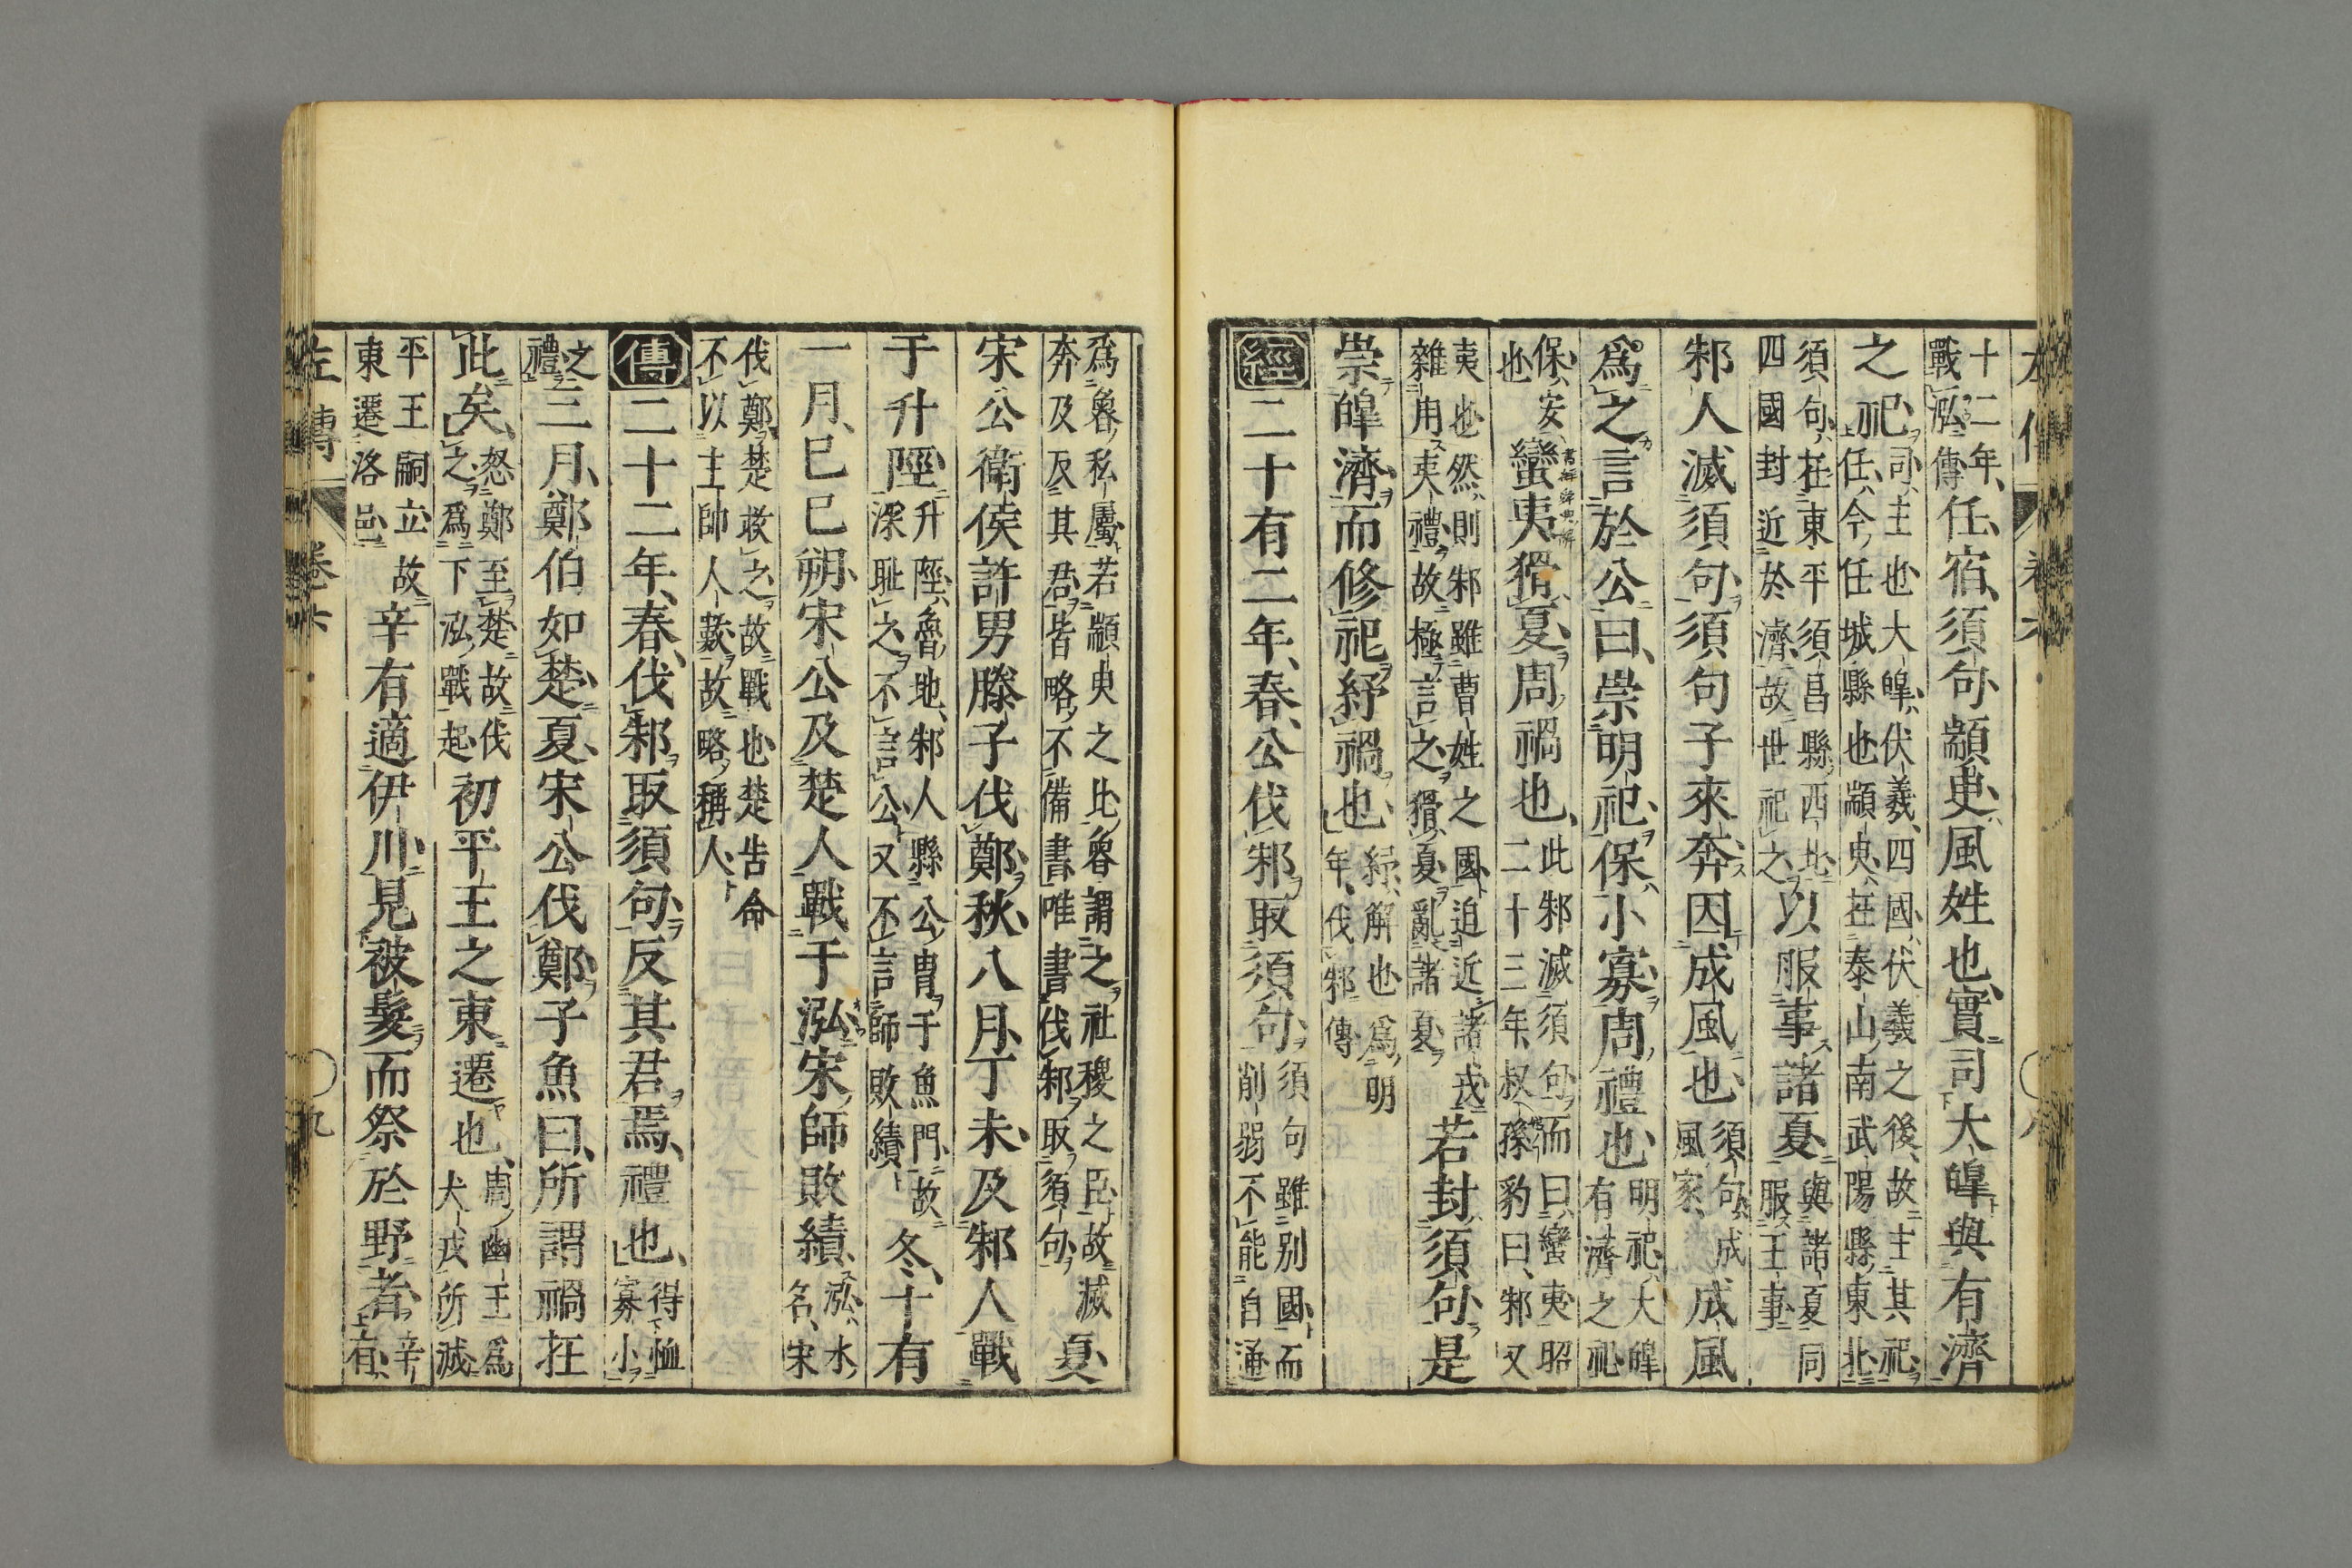 十二年、戰泓傳任、宿、須句、顓臾、風姓也、實司大皥與有濟
之祀、司、主也、大皥、伏羲、四國、伏羲之後、故主其祀、任、今任城縣也、顓臾、在泰山南武陽縣東北、
須句、在東平須昌縣西北、四國封近於濟、故世祀之以服事諸夏、與諸夏同服王事
邾人滅須句、須句子來奔、因成風也、須句、成風家、成風
爲之言於公曰、崇明祀、保小寡、周禮也、明祀、大皥有濟之祀
保、安也蠻夷猾夏、周禍也、此邾滅須句、而曰蠻夷、昭二十三年、叔孫豹曰、邾又
夷也、然則邾雖曹姓之國、迫近諸戎、雜用夷禮、故極言之、猾夏、亂諸夏若封須句、是
崇皥濟而修祀紓禍也、紓、解也爲明年、伐邾傳
經二十有二年、春、公伐邾、取須句、須句雖別國、而削弱不能自通
爲魯私屬、若顓臾之比、魯謂之社稷之臣、故滅奔及反其君、皆略不備書、唯書伐邾、取須句、夏、
宋公衛侯許男滕子伐鄭、秋、八月、丁未、及邾人戰
于升陘、升陘、魯地、邾人縣公冑于魚門、故深耻之、不言公、又不言師敗績、冬、十有
一月、己巳朔、宋公及楚人戰于泓、宋師敗績、泓、水名、宋
伐鄭、楚救之、故戰也、楚告命不以主帥人數、故略稱人、
傳二十二年、春、伐邾、取須句、反其君焉、禮也、得恤寡小
之禮、三月、鄭伯如楚、夏、宋公伐鄭、子魚曰、所謂禍在
此矣、怒鄭至楚、故伐之、爲下泓戰起初、平王之東遷也、周幽王爲犬戎所滅
平王嗣立、故東遷洛邑、辛有適伊川、見被髮而祭於野者、辛有
左傳 卷六 九